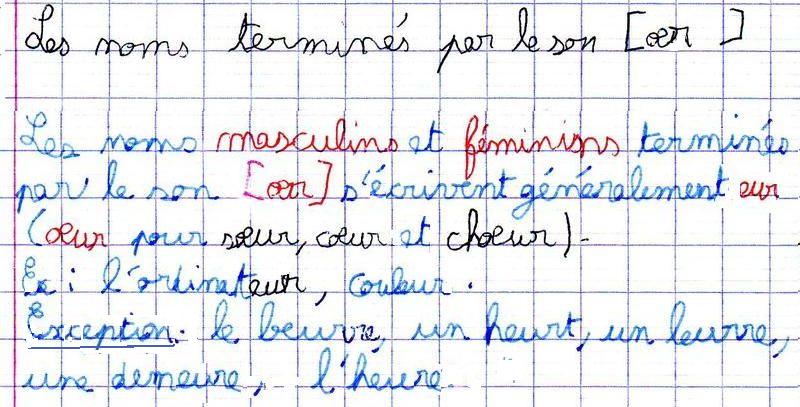 Les noms terminés par le son [œr]
Les noms masculins et féminins terminés
par le son [œr] s'écrivent généralement eur
(œur pour sœur, cœur et chœur).
Ex : l'ordinateur, couleur.
Exception : le beurre, un heurt, un leurre,
une demeure, l'heure.